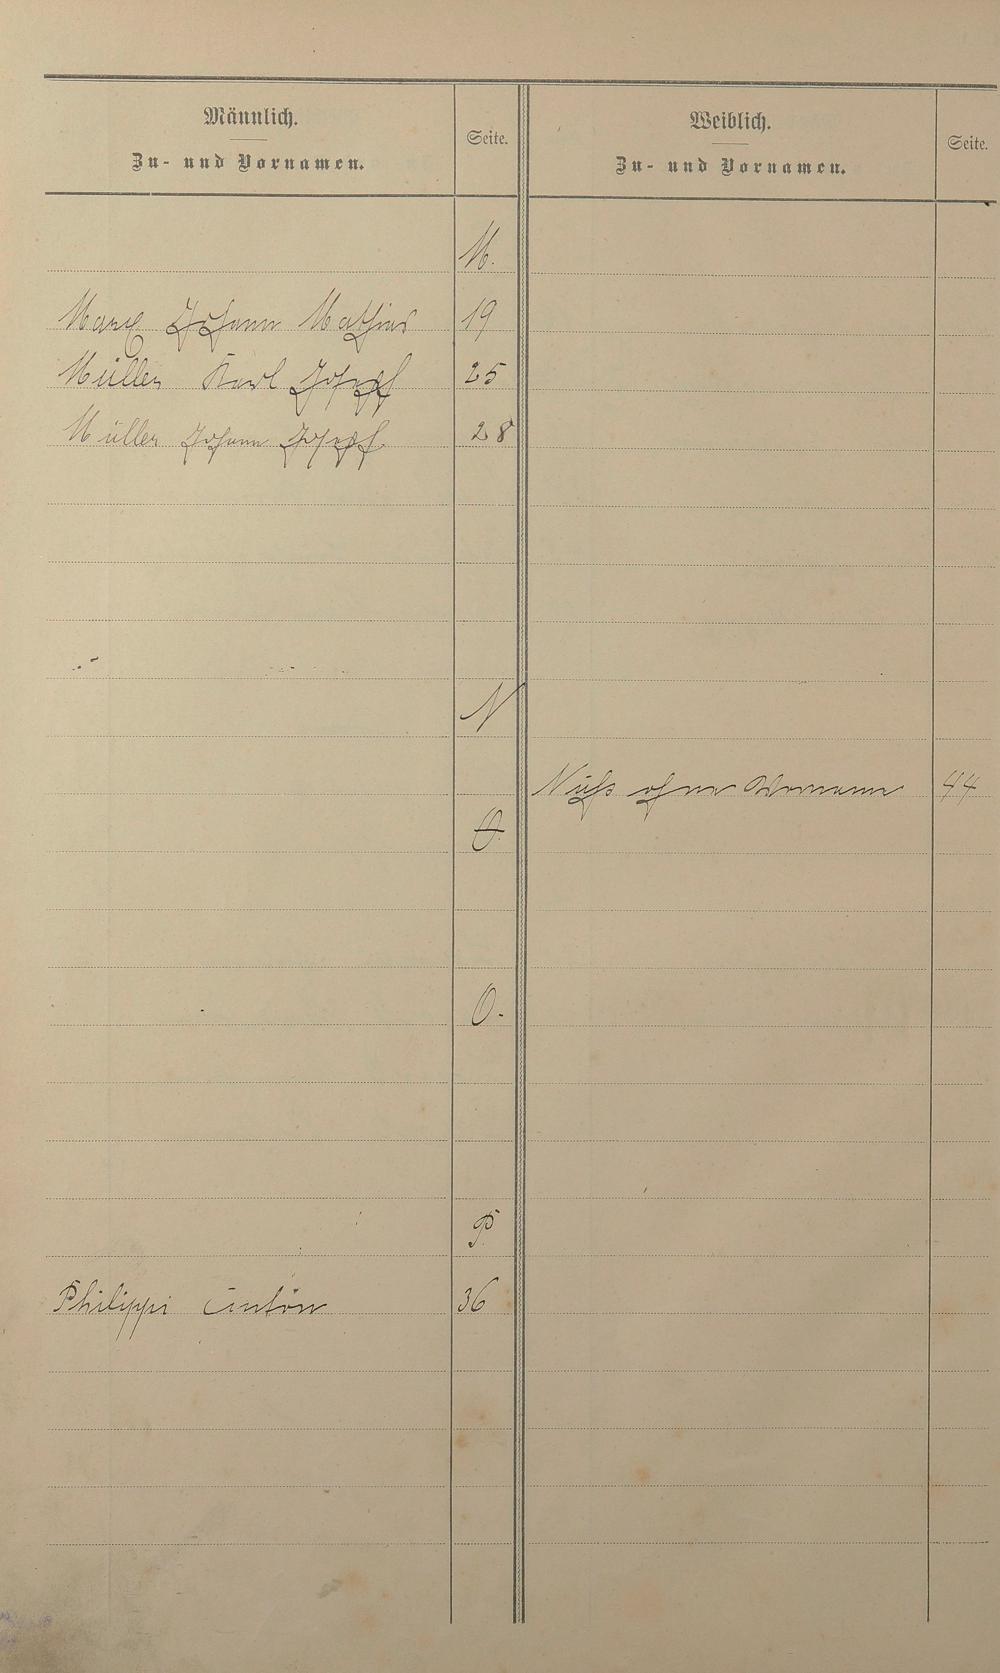 Männlich.
Zu- und Vornamen.
Seite.
Weiblich.
Zu- und Vornamen.
Seite.
M.
Marx Johann Mathias 19
Müller Karl Josef 25
Müller Johann Josef 28
N
Nuß ohne Vorname 44
O.
O.
P
Philippi Anton 36